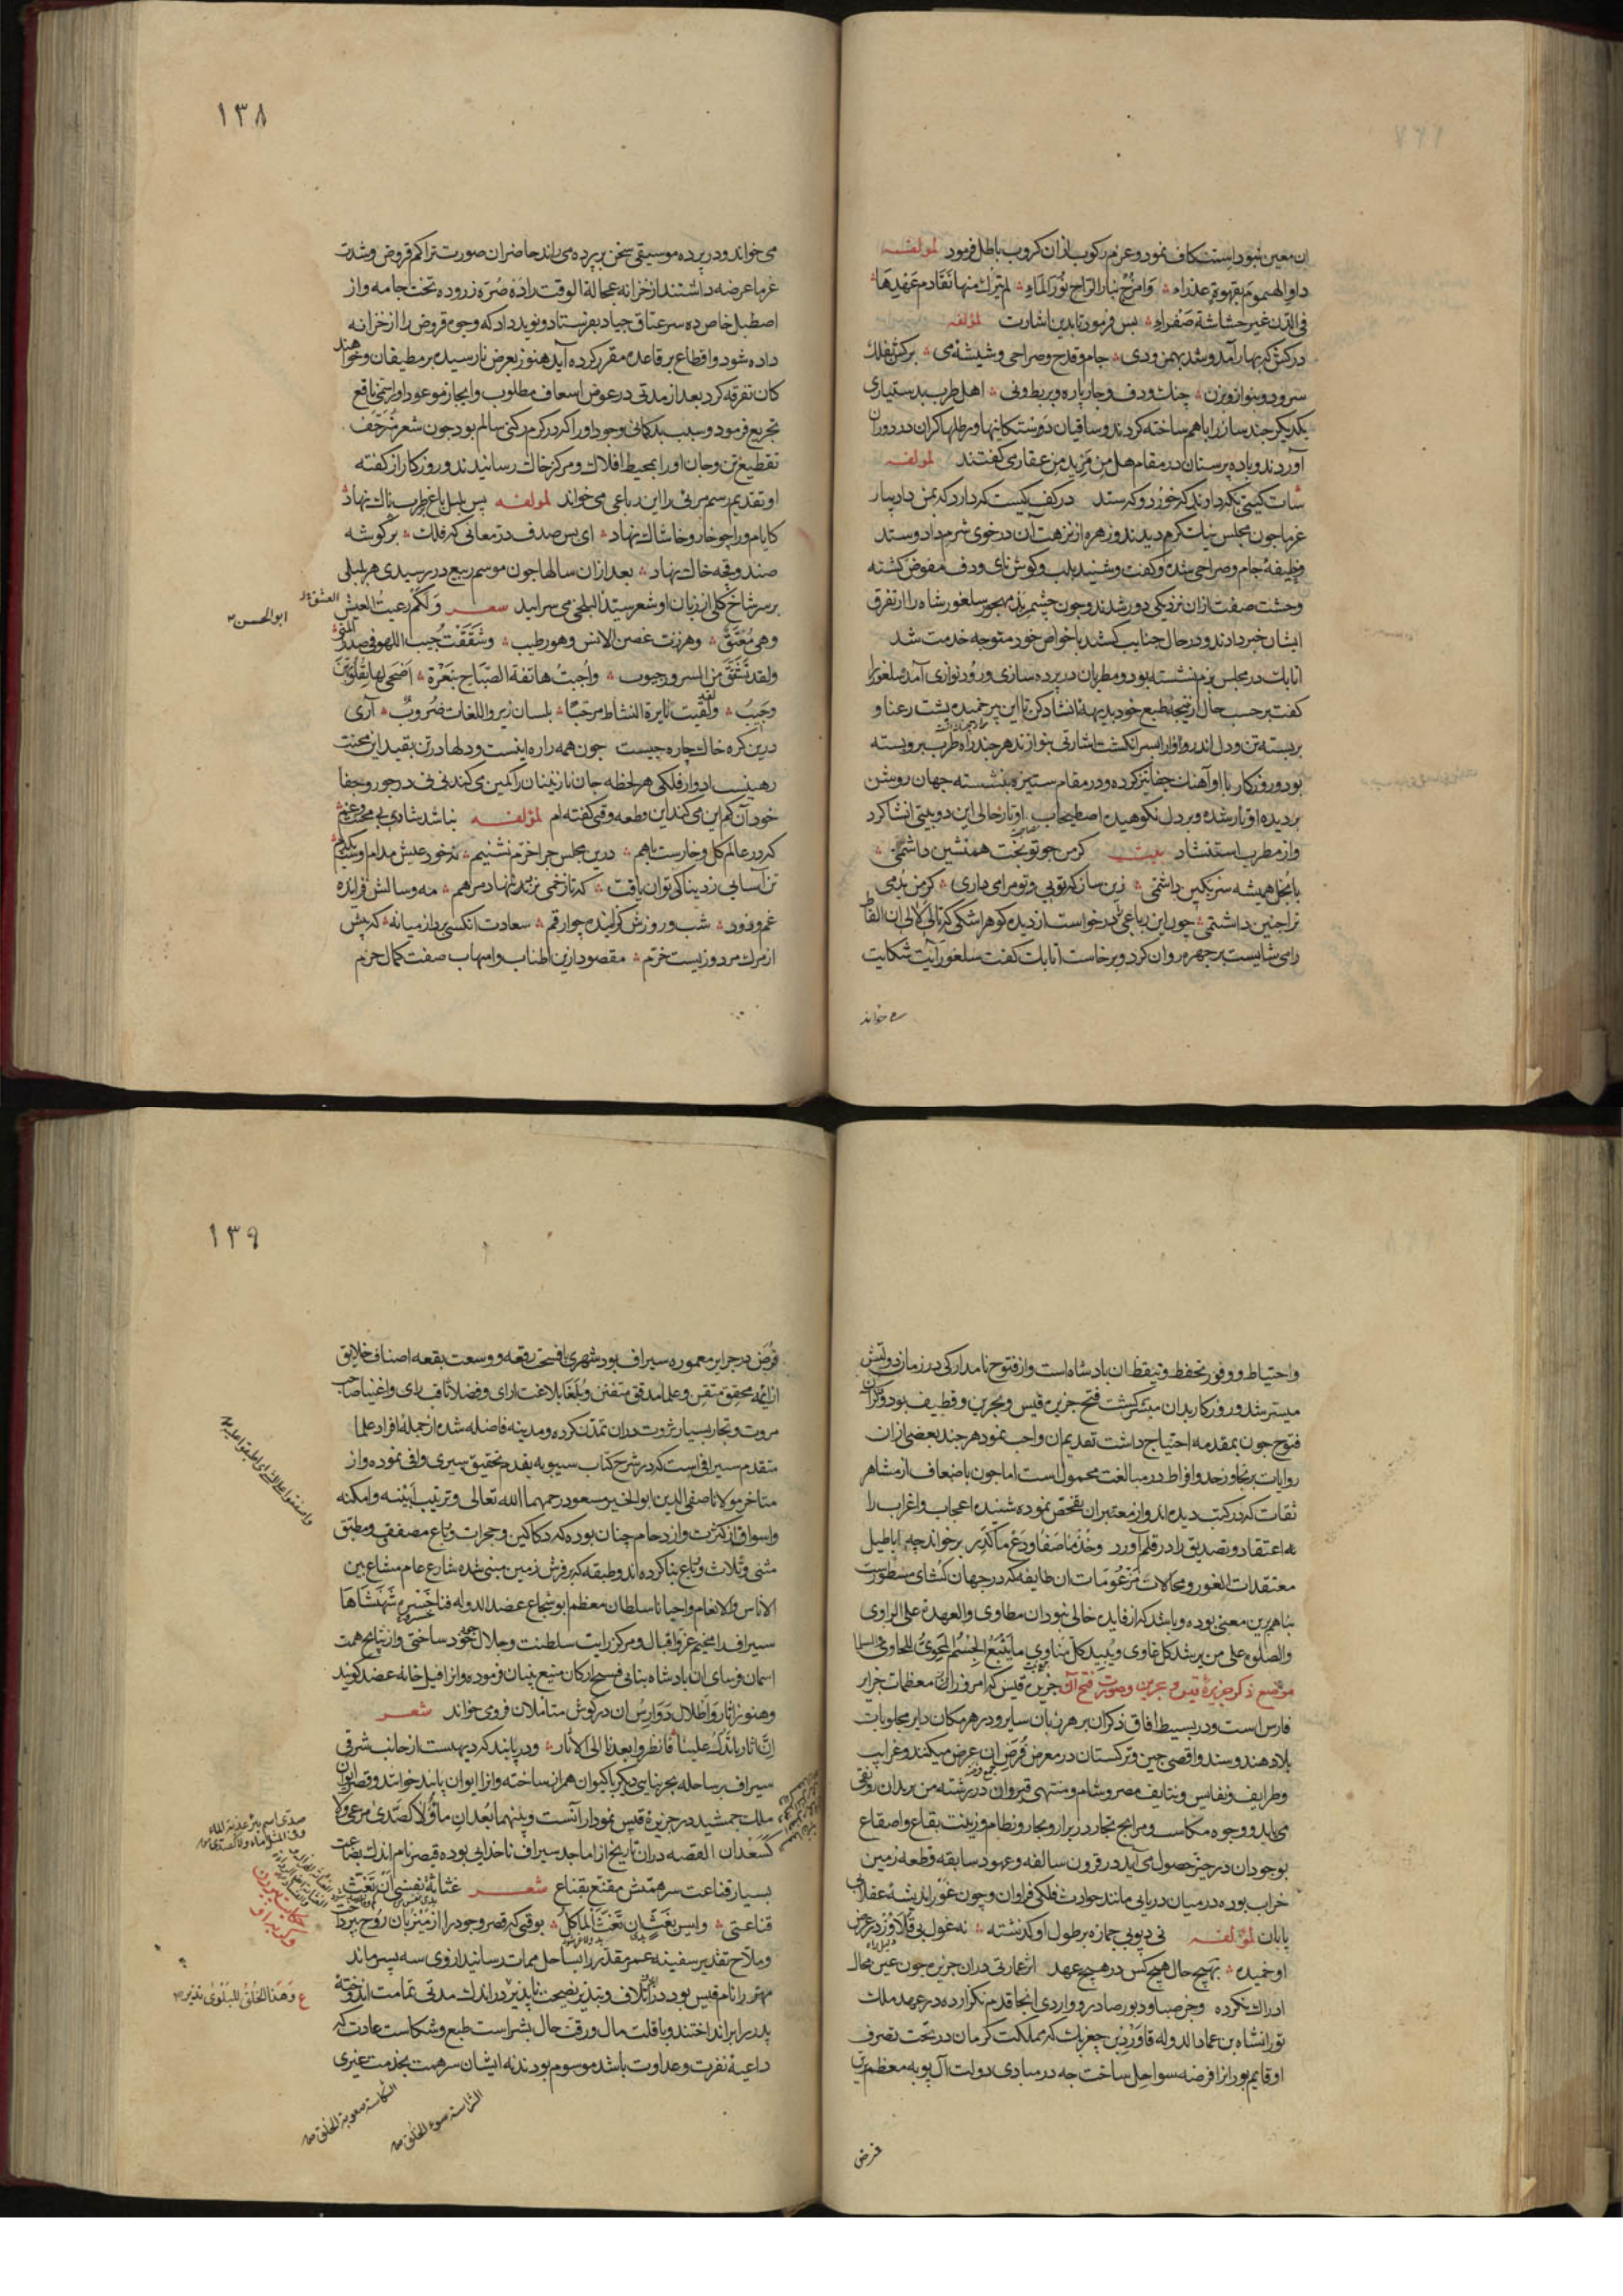 ان معین نبود استنکاف نمود و عزم رکوب از ان کروب باطل فرمود لمولفه
داو الهموم بقهوة عذراء وامزج بنار الراح نور الماء لم یترک منها تقادم عهدها
فی الدن غیر حشاشة صفراء بس فرمود تا بدین اشارت لمولفه
درکش که بهار آمد و شد بهمن و دی جام و قدح و صراحی و شیشه می برکش بفلک
سرود و بنواز و بزن چنک و دف و چارپاره و بربط و نی اهل طرب بدستیاری
یکدیکر جند ساز را باهم ساخته کردند و ساقیان دوستکانیها و رطلها کران در دوران
آوردند و باده پرستان در مقام هل من مزید من عقاری کفتند لمولفه
غرما جون مجلس
وظیفهٔ جام و صراحی شده و کفت و شنید بلب و کوش نای و دف مفوض کشته
وحشت صفت ازان نزدیکی دور شدند و جون چشم بد مهجور سلغور شاه را از تفرق
ایشان خبر دادند و در حال جنایب کشند با خواص خود متوجه خدمت شد
اتابک در مجلس بزم نشسته بود و مطربان در پرده سازی و رود نوازی آمد سلغور را
کفت بر حسب حال از نتیجهٔ طبع خود بدیهة انشاد کن تا این پر خمیده پشت رعنا و
بربسته تن و دل اندروا را بسر انکشت اشارتی بنوازند هر جند راه طرب برو بسته
بود و روزکار با او آهنک جفا تیز کرده و در مقام ستیزه بنشسته جهان روشن
بر دیده او تار شده و بر دل نکوهیده اصطحاب اوتار حالی این دو بیتی انشا کرد
و از مطرب استنشاد بیت کر من جو تو بخت همنشین داشتمی
با بخل همیشه سر بکین داشتمی زین سان که تویی و تو مرا می داری کر من بدمی
ترا جنین داشتمی چون این رباعی درخواست از دیده کو هر اشکی که تالی لالی ان الفاظ
را می شایست بر جهره روان کرد و برخاست اتابک کفت سلغور آیت شکایت
می خواند
۱۳۸
می خواند و در پرده موسیقی سخن بی پرده می راند حاضران صورت تراکم قروض و شدت
غرما عرضه داشتند از خزانه عجالة الوقت را ده صره زر و ده تخت جامه و از
اصطبل خاص ده سر عتاق جیاد بفرستاد و نوید داد که وجوه قروض را از خزانه
داده شود و اقطاع بر قاعده مقرر کرده آید هنوز بعرض نا رسیده بر مطیقان و خواهند
کان تفرقه کرد بعد از مدتی در عوض اسعاف مطلوب و ایجاز موعود او را سمی ناقع
تجریع فرمود و بسبب بدکمانی وجود او را که در کرم رکنی سالم بود جون شعر مزحف
تقطیع تن و جان او را بمحیط افلاک و مرکز خاک رسانیدند و روزکار از کفته
او تقدیم رسم مرثی را این رباعی می خواند لمولفه بس بلبل باغ طرب پاک نهاد
کایام ورا چو خار و خاشاک نهاد ای بس صدف در معانی که فلک بر کوشه
صندوقچه خاک نهاد بعد ازان سالها جون موسم ربیع در رسیدی هر بلبلی
بر سر شاخ کلی از زبان او شعر سید البلخی می سرایید شعر ولکم رعیت العیش
ابو الحسن
وهی معنق وهززت غصن الانس وهو رطیب وشققت جیب اللهو فی صدر المنی
من السرور جیوب واجبت هاتفة الصباح بنعرة اضحی لها
وجیب ولقیت نایرة النشاط مرحبا بلسان زیر واللغات ضروب آری
درین کره خاک چاره چیست جون همه را ره اینست و دلها در تن بقید این محنت
رهینست ادوار فلکی هر لحظه جان نازنینان را کمین می کند نی نی در جور و جفا
خود آن کم این می کند این قطعه وقتی کفته ام لمؤلفه نباشد شادی بی محنت و غم
که در عالم کل و خارست باهم درین مجلس جرا خرم نشینیم نه خود عیش مدام اوست یکدم
تن آسانی ز دنیا کی توان یافت که تا زخمی نزد ننهاد مرهم مه و سالش فزاینده
غم و درد شب و روزش کزاینده چو ارقم سعادت انکسی برد از میانه که پیش
از مرک مرد و زیست خرم مقصود ازین اطناب و اسهاب صفت کمال حزم
و احتیاط و وفور تحفظ و تیقظ ان بادشاه است و از فتوح نامدار کی در زمان دولتش
میسر شد و روزکار بدان مبشر کشت فتح جزیره قیس و بحرین و قطیف بود و ذکر آن
فتوح جون بمقدمه احتیاج داشت تقدیم ان واجب نمود هر جند بعضی ازان
روایات بر تجاوز حد و افراط در مبالغت محمول است اما جون باضعاف از مشاهر
ثقات که در کتب دیده اند و از معتبران تفحص نموده شنیده اعجاب و اغراب را
به اعتقاد و تصدیق را در قلم آورد وخذ ما صفا ودع ما کدر بر خواند چه اباطیل
معتقدات الغور و محالات مزعومات ان طایفه که در جهان کشای مسطورست
بنا هم برین معنی بوده و باشد که از فایده خالی نبود ان مطاوی والعهدة علی الراوی
والصلوة علی من یرشد کل غاوی ویبید کل مناوی ما یتبع الجسم المحوی للحاوی
موضع ذکر جزیره قیس و بحرین و صورت فتح آن جزیره قیس که امروز از معظمات جزایر
فارس است و در بسیط افاق ذکر ان بر هر زبان سایر و در هر مکان دایر مجلوبات
بلاد هند و سند و اقصی جین و ترکستان در معرض فرض ان عرض میکنند و غرایب
و طرایف و نفایس و نتایف مصر و شام و منتهی قیروان در رشته من یزید ان رونقی
می یابد و وجوه مکاسب و مرابح تجار در براری و بحار و نظام و زینت بقاع و اصقاع
بوجود ان در حیز حصول می آید در قرون سالفه و عهود سابقه قطعه زمین
خراب بوده در میان دریایی مانند حوادث فلکی فراوان و چون غور اندیشهٔ عقلا بی
پایان لمؤلفه نی دیو پی جمازه بر طول او کذشته نه غول بی قلاوز در عرض
او خمیده بهیچ حال هیچ کس در هیچ عهد اثر عمارتی دران جزیره جون عین محال
ادراک نکرده وجز صبا و دبور صادر و واردی انجا قدم نکزارده در عهد ملک
تورانشاه بن عماد الدوله قاورد بن چغربک که مملکت کرمان در تحت تصرف
او قایم بود انرا فرضه سواحل ساخت جه در مبادی دولت آل بویه معظم ترین
فرض
۱۳۹
فرض در جزایر معموره سیراف بود شهری با فسحت رقعه و وسعت بقعه اصناف خلایق
از ائمه محقق متقن و علما مدقق متفنن و بلغا بلاغت ارای و فضلا ثاقب رای و اغنیا صاحب
مروت و تجار بسیار ثروت دران تمدن کرده و مدینه فاضله شده از جمله افراد علما
متقدم سیرافی است که در شرح کتاب سیبویه بقدم تحقیق سیری وافی نموده و از
متاخر مولانا صفی الدین ابو الخیر مسعود رحمهما الله تعالی و ترتیب ابنیه و امکنه
و اسواق از کثرت و ازدحام چنان بوده که دکاکین و حجرات و رباع مصفف و مطبق
مثنی و ثلاث و رباع بنا کرده اند و طبقه که بر فرش زمین مبنی شده شارع عام مشاع بین
الاناس والانعام و احیانا سلطان معظم ابو شجاع عضد الدوله فناخسرو شهنشاها
سیراف را مخیم عز و اقبال و مرکز رایت سلطنت و جلال خود ساختی و از نتایج همت
اسمان فرسای ان بادشاه بنایی فسیح ارکان منیع بنیان فرموده و انرا فیل خانه عضد کویند
و هنوز اثار و اطلال دوارس ان در کوش متأملان فرو می خواند شعر
ان اثارنا تدل علینا فانظروا بعدنا الی الآثار و در پابند که دیهست از جانب شرقی
سیراف بر ساحل بحر بنایی دیکر با کیوان همراز ساخته و انرا ایوان پابند خوانند و قصر ایوان
ملک جمشید در جزیره قیس نمودار آنست وبینهما بعدان ماؤ لا کصدی مرعی ولا
کسعدان القصه دران تاریخ از اماجد سیراف ناخدایی بوده قیصر نام اندک بضاعت
بسیار قناعت سر همتش مقنع بقناع شعر غثاثة نفسی ان تغث
قناعتی ولیس بغث ان تغث المآکل بوقتی که قصر وجود را از میزبان روح ببرداخت
و ملاح تقدیر سفینه عمر مقدر را بساحل ممات رسانید از وی سه بسر ماند
مهتر را نام قیس بود در اتلاف و تبذیر نصیحت نا پذیر در اندک مدتی تمامت اندوخته
پدر را بر انداختند و با قلت مال و رقت حال بشراست طبع و شکاست عادت که
داعیهٔ نفرت و عداوت باشد موسوم بودند نه ایشان سر همت بخدمت غیری
ع وهذا الخلق للبلوی نذیر
الشکاسة صعوبة الخلق
الشراسة سوء الخلق